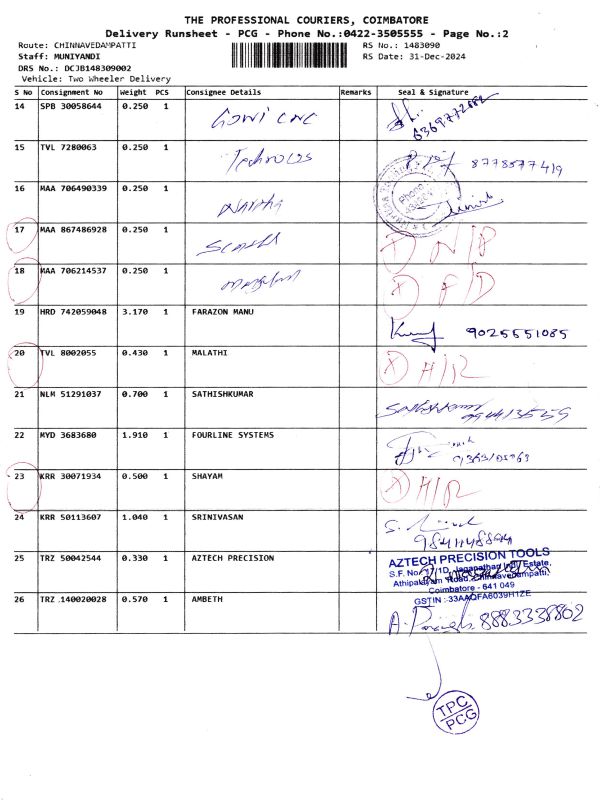 THE PROFESSIONAL COURIERS, COIMBATORE
Delivery Runsheet - PCG - Phone No.:0422-3505555 - Page No.:2
Route: CHINNAVEDAMPATTI RS No.: 1483090
Staff: MUNIYANDI RS Date: 31-Dec-2024
DRS No.: DCJB148309002
Vehicle: Two Wheeler Delivery
S No Consignment No Weight PCS Consignee Details Remarks Seal & Signature
14 SPB 30058644 0.250 1
6369772682
15 TVL 7280063 0.250 1 8778577419
16 MAA 706490339 0.250 1
17 MAA 867486928 0.250 1 X N/P
18 MAA 706214537 0.250 1 X
19 HRD 742059048 3.170 1 FARAZON MANU
9025551085
20 TVL 8002055 0.430 1 MALATHI X H/R
21 NLM 51291037 0.700 1 SATHISHKUMAR
22 MYD 3683680 1.910 1 FOURLINE SYSTEMS
23 KRR 30071934 0.500 1 SHAYAM X H/R
24 KRR 50113607 1.040 1 SRINIVASAN
25 TRZ 50042544 0.330 1 AZTECH PRECISION
AZTECH PRECISION TOOLS
Athipalayam Road, Chinnavedampatti,
Coimbatore - 641 049
GSTIN :33AAQFA6039H1ZE
26 TRZ 140020028 0.570 1 AMBETH
8883338802
TPC
PCG